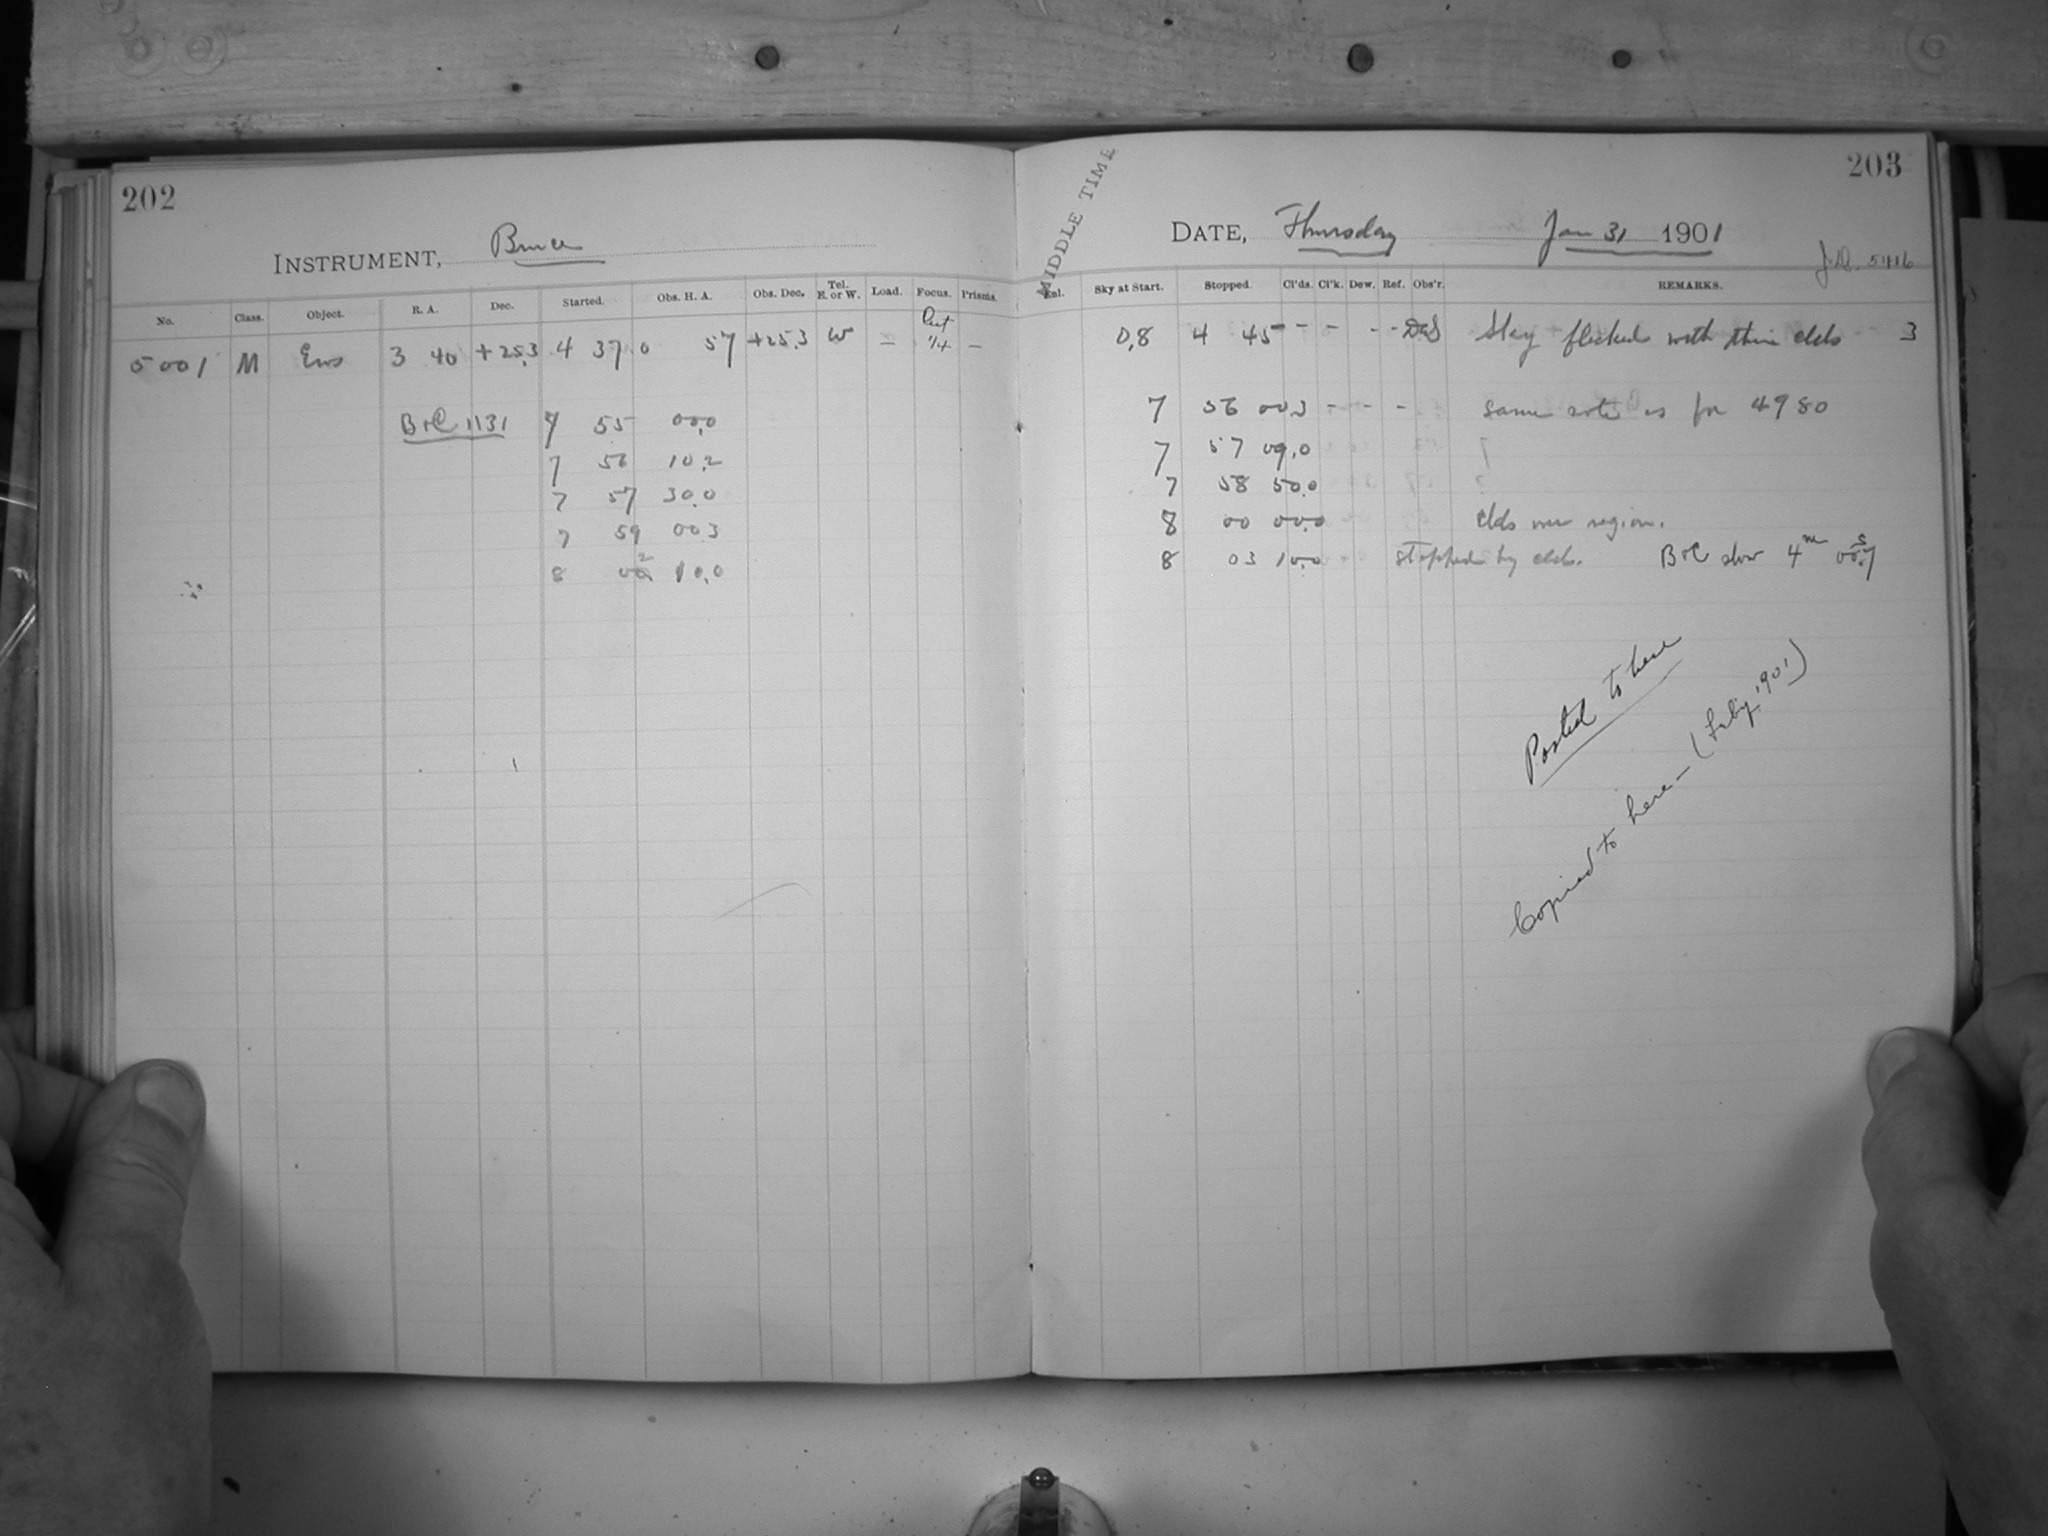 202
INSTRUMENT, Bruce
No. Class. Object. R. A. Dec. Started. Obs. H. A. Obs. Dec. Tel. E. or W. Load. Focus. Prisms.
5001 M Eros 3 40 +25.3 4 37 0 57 +25.3 W – 1/4 –
B+C 1131 7 55 00.0
7 56 10.2
7 57 30.0
7 59 00.3
8 02 10.0
203
MIDDLE TIME
DATE, Thursday Jan 31 1901
J.D. 5416
Enl. Sky at Start. Stopped. Cl'ds. Cl'k. Dew. Ref. Obs'r. REMARKS.
0.8 4 45 – – – – – Sky flecked with thin clds 3
7 56 00.3 – – – same note as for 4980
7 57 09.0
7 58 50.0
8 00 00.0 clds over region.
8 03 10.0 stopped by clds. B+C slow 4m 00.7s
Posted to here
Copied to here – (Feby. 1901)